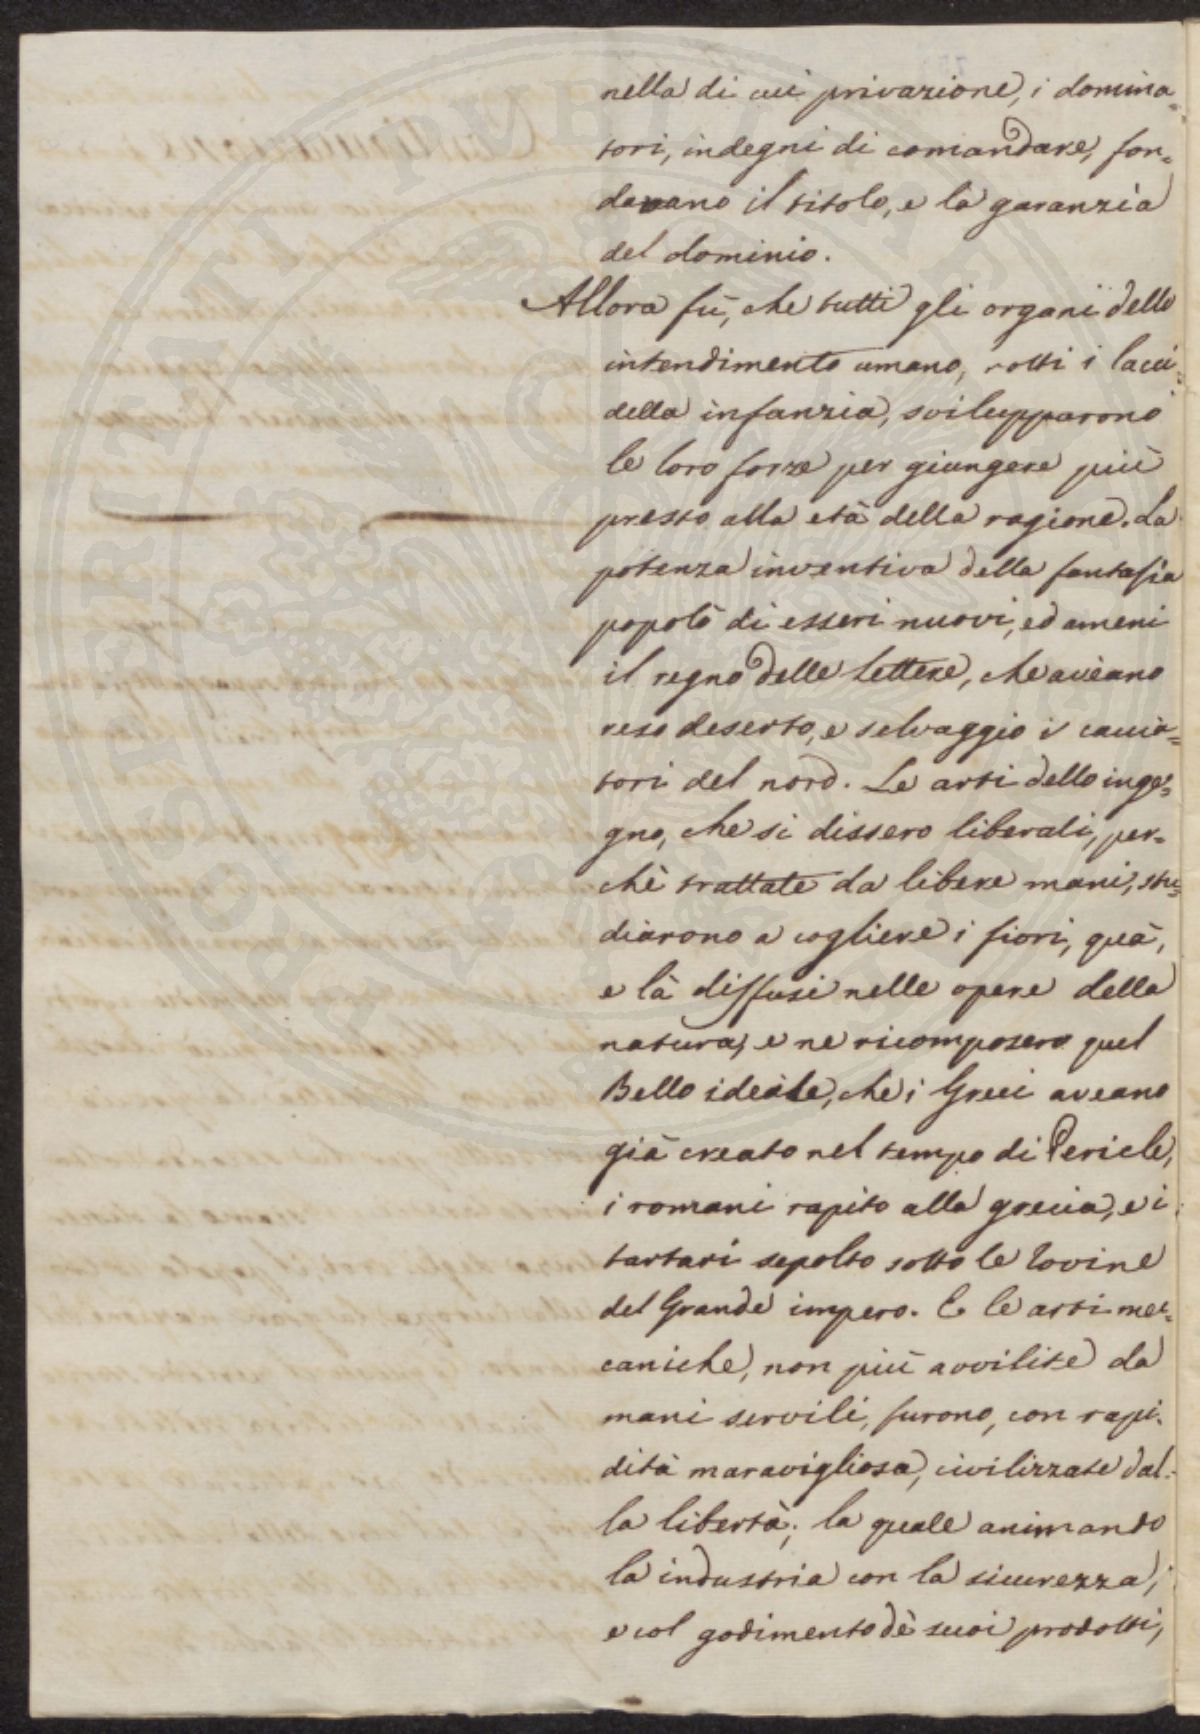 nella di cui privazione, i domina=
tori, indegni di comandare, fon=
davano il titolo, e la garanzia
del dominio.
Allora fù, che tutti gli organi dello
intendimento umano, rotti i lacci
della infanzia, svilupparono
le loro forze per giungere più
presto alla età della ragione. La
potenza inventiva della fantasia
popolò di esseri nuovi, ed ameni
il regno delle lettere, che aveano
reso deserto, e selvaggio i caccia=
tori del nord. Le arti dello inge=
gno, che si dissero liberali, per=
chè trattate da libere mani, stu=
diarono a cogliere i fiori, quà,
e là diffusi nelle opere della
natura, e ne ricomposero quel
Bello ideale, che i Greci aveano
già creato nel tempo di Pericle,
i romani rapito alla grecia, e i
tartari sepolto sotto le rovine
del Grande impero. E le arti mec=
caniche, non più avvilite da
mani servili, furono, con rapi=
dità maravigliosa, civilizzate dal=
la libertà; la quale animando
la industria con la sicurezza,
e col godimento dè suoi prodotti,